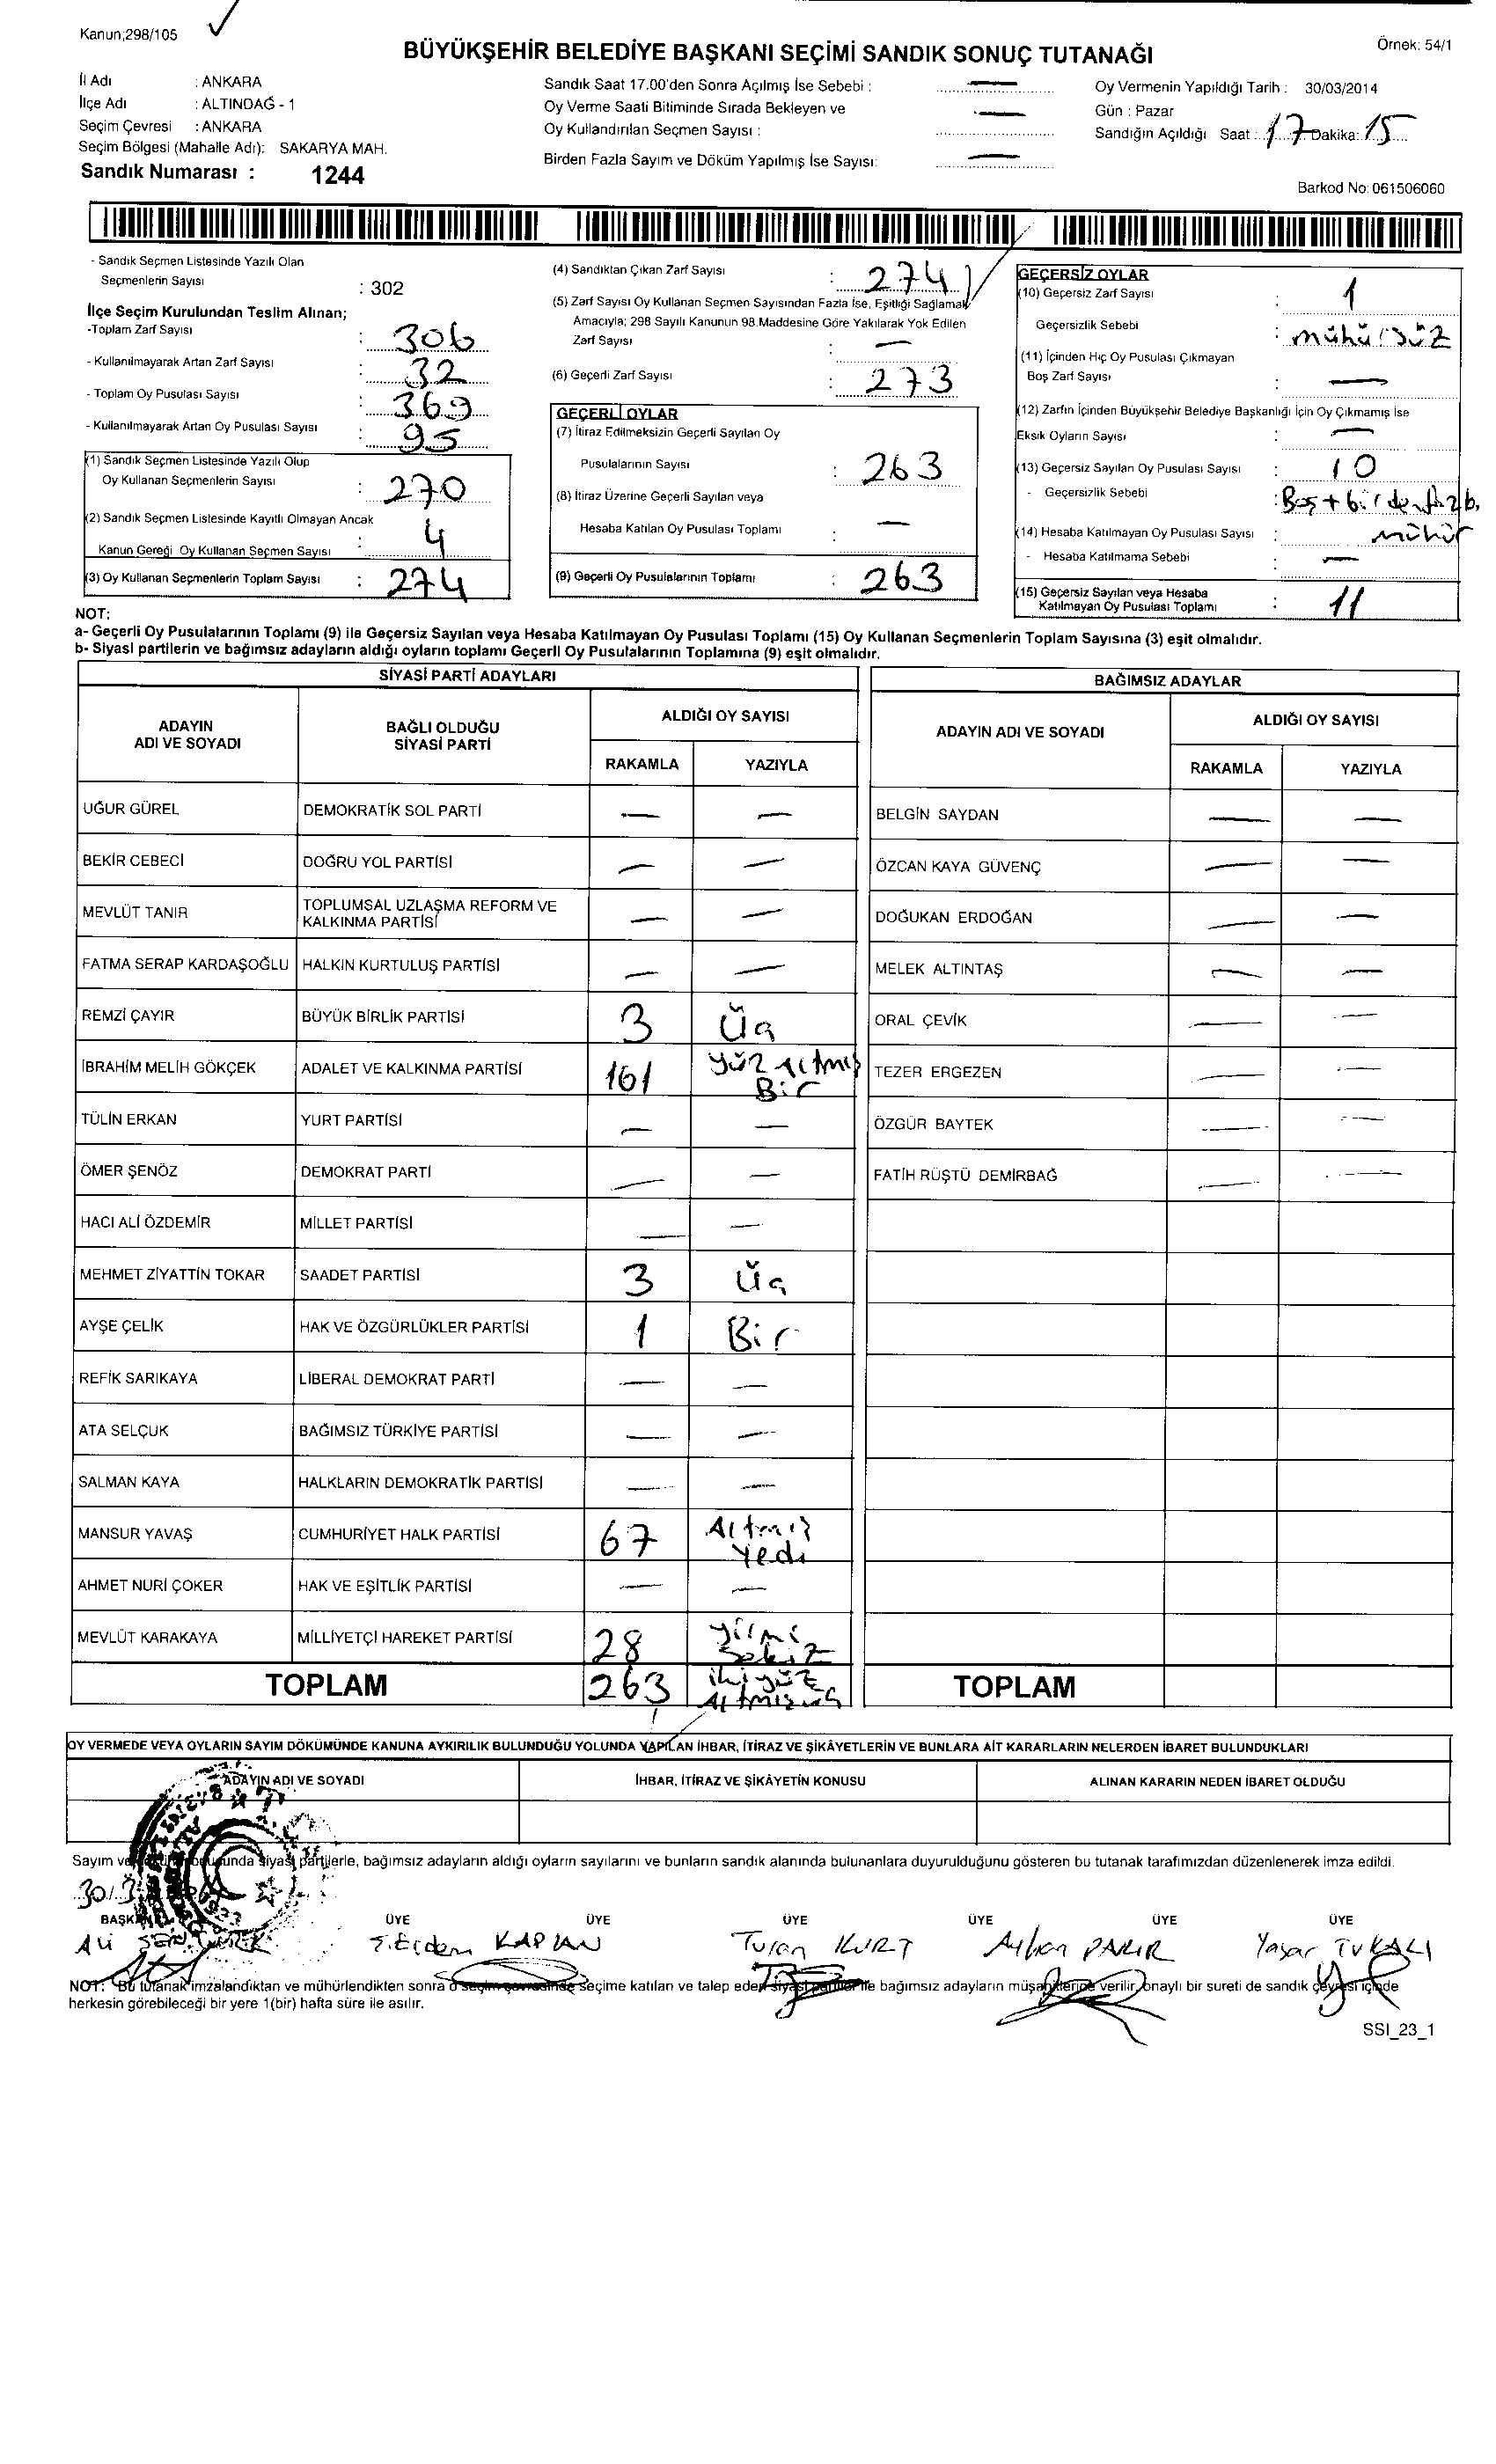 Kanun;298/105
BÜYÜKŞEHİR BELEDİYE BAŞKANI SEÇİMİ SANDIK SONUÇ TUTANAĞI
Örnek: 54/1
İl Adı : ANKARA
İlçe Adı : ALTINDAĞ - 1
Seçim Çevresi : ANKARA
Seçim Bölgesi (Mahalle Adı): SAKARYA MAH.
Sandık Numarası : 1244
Sandık Saat 17.00'den Sonra Açılmış İse Sebebi : —
Oy Verme Saati Bitiminde Sırada Bekleyen ve
Oy Kullandırılan Seçmen Sayısı : —
Birden Fazla Sayım ve Döküm Yapılmış İse Sayısı: —
Oy Vermenin Yapıldığı Tarih : 30/03/2014
Gün : Pazar
Sandığın Açıldığı Saat : 17 Dakika: 15
Barkod No: 061506060
- Sandık Seçmen Listesinde Yazılı Olan
Seçmenlerin Sayısı : 302
İlçe Seçim Kurulundan Teslim Alınan;
-Toplam Zarf Sayısı : 306
- Kullanılmayarak Artan Zarf Sayısı : 32
- Toplam Oy Pusulası Sayısı : 369
- Kullanılmayarak Artan Oy Pusulası Sayısı : 95
(1) Sandık Seçmen Listesinde Yazılı Olup
Oy Kullanan Seçmenlerin Sayısı : 270
(2) Sandık Seçmen Listesinde Kayıtlı Olmayan Ancak
Kanun Gereği Oy Kullanan Seçmen Sayısı : 4
(3) Oy Kullanan Seçmenlerin Toplam Sayısı : 274
(4) Sandıktan Çıkan Zarf Sayısı : 274
(5) Zarf Sayısı Oy Kullanan Seçmen Sayısından Fazla İse, Eşitliği Sağlamak
Amacıyla; 298 Sayılı Kanunun 98.Maddesine Göre Yakılarak Yok Edilen
Zarf Sayısı : —
(6) Geçerli Zarf Sayısı : 273
GEÇERLİ OYLAR
(7) İtiraz Edilmeksizin Geçerli Sayılan Oy
Pusulalarının Sayısı : 263
(8) İtiraz Üzerine Geçerli Sayılan veya
Hesaba Katılan Oy Pusulası Toplamı : —
(9) Geçerli Oy Pusulalarının Toplamı : 263
GEÇERSİZ OYLAR
(10) Geçersiz Zarf Sayısı : 1
Geçersizlik Sebebi : mühürsüz
(11) İçinden Hiç Oy Pusulası Çıkmayan
Boş Zarf Sayısı : —
(12) Zarfın İçinden Büyükşehir Belediye Başkanlığı İçin Oy Çıkmamış İse
Eksik Oyların Sayısı : —
(13) Geçersiz Sayılan Oy Pusulası Sayısı : 10
- Geçersizlik Sebebi : Boş + birden fazla
mühür
(14) Hesaba Katılmayan Oy Pusulası Sayısı :
- Hesaba Katılmama Sebebi : —
(15) Geçersiz Sayılan veya Hesaba
Katılmayan Oy Pusulası Toplamı : 11
NOT:
a- Geçerli Oy Pusulalarının Toplamı (9) ile Geçersiz Sayılan veya Hesaba Katılmayan Oy Pusulası Toplamı (15) Oy Kullanan Seçmenlerin Toplam Sayısına (3) eşit olmalıdır.
b- Siyasi partilerin ve bağımsız adayların aldığı oyların toplamı Geçerli Oy Pusulalarının Toplamına (9) eşit olmalıdır.
SİYASİ PARTİ ADAYLARI
ADAYIN ADI VE SOYADI BAĞLI OLDUĞU SİYASİ PARTİ ALDIĞI OY SAYISI
RAKAMLA YAZIYLA
UĞUR GÜREL DEMOKRATİK SOL PARTİ — —
BEKİR CEBECİ DOĞRU YOL PARTİSİ — —
MEVLÜT TANIR TOPLUMSAL UZLAŞMA REFORM VE KALKINMA PARTİSİ — —
FATMA SERAP KARDAŞOĞLU HALKIN KURTULUŞ PARTİSİ — —
REMZİ ÇAYIR BÜYÜK BİRLİK PARTİSİ 3 Üç
İBRAHİM MELİH GÖKÇEK ADALET VE KALKINMA PARTİSİ 161 Yüz Altmış Bir
TÜLİN ERKAN YURT PARTİSİ — —
ÖMER ŞENÖZ DEMOKRAT PARTİ — —
HACI ALİ ÖZDEMİR MİLLET PARTİSİ — —
MEHMET ZİYATTİN TOKAR SAADET PARTİSİ 3 Üç
AYŞE ÇELİK HAK VE ÖZGÜRLÜKLER PARTİSİ 1 Bir
REFİK SARIKAYA LİBERAL DEMOKRAT PARTİ — —
ATA SELÇUK BAĞIMSIZ TÜRKİYE PARTİSİ — —
SALMAN KAYA HALKLARIN DEMOKRATİK PARTİSİ — —
MANSUR YAVAŞ CUMHURİYET HALK PARTİSİ 67 Altmış Yedi
AHMET NURİ ÇOKER HAK VE EŞİTLİK PARTİSİ — —
MEVLÜT KARAKAYA MİLLİYETÇİ HAREKET PARTİSİ 28 Yirmi Sekiz
TOPLAM 263 ikiyüz Altmışüç
BAĞIMSIZ ADAYLAR
ADAYIN ADI VE SOYADI ALDIĞI OY SAYISI
RAKAMLA YAZIYLA
BELGİN SAYDAN — —
ÖZCAN KAYA GÜVENÇ — —
DOĞUKAN ERDOĞAN — —
MELEK ALTINTAŞ — —
ORAL ÇEVİK — —
TEZER ERGEZEN — —
ÖZGÜR BAYTEK — —
FATİH RÜŞTÜ DEMİRBAĞ — —
TOPLAM
OY VERMEDE VEYA OYLARIN SAYIM DÖKÜMÜNDE KANUNA AYKIRILIK BULUNDUĞU YOLUNDA YAPILAN İHBAR, İTİRAZ VE ŞİKÂYETLERİN VE BUNLARA AİT KARARLARIN NELERDEN İBARET BULUNDUKLARI
ADAYIN ADI VE SOYADI İHBAR, İTİRAZ VE ŞİKÂYETİN KONUSU ALINAN KARARIN NEDEN İBARET OLDUĞU
Sayım ve siyasi partilerle, bağımsız adayların aldığı oyların sayılarını ve bunların sandık alanında bulunanlara duyurulduğunu gösteren bu tutanak tarafımızdan düzenlenerek imza edildi.
30/3
BAŞKAN ÜYE ÜYE ÜYE ÜYE ÜYE ÜYE
Ali Erdem KAPLAN Turan KURT Ayhan Yaşar
NOT: Bu tutanak imzalandıktan ve mühürlendikten sonra o seçim çevresinde seçime katılan ve talep eden siyasi partiler ile bağımsız adayların müşahitlerine verilir, onaylı bir sureti de sandık çevresi içinde
herkesin görebileceği bir yere 1(bir) hafta süre ile asılır.
SSI_23_1